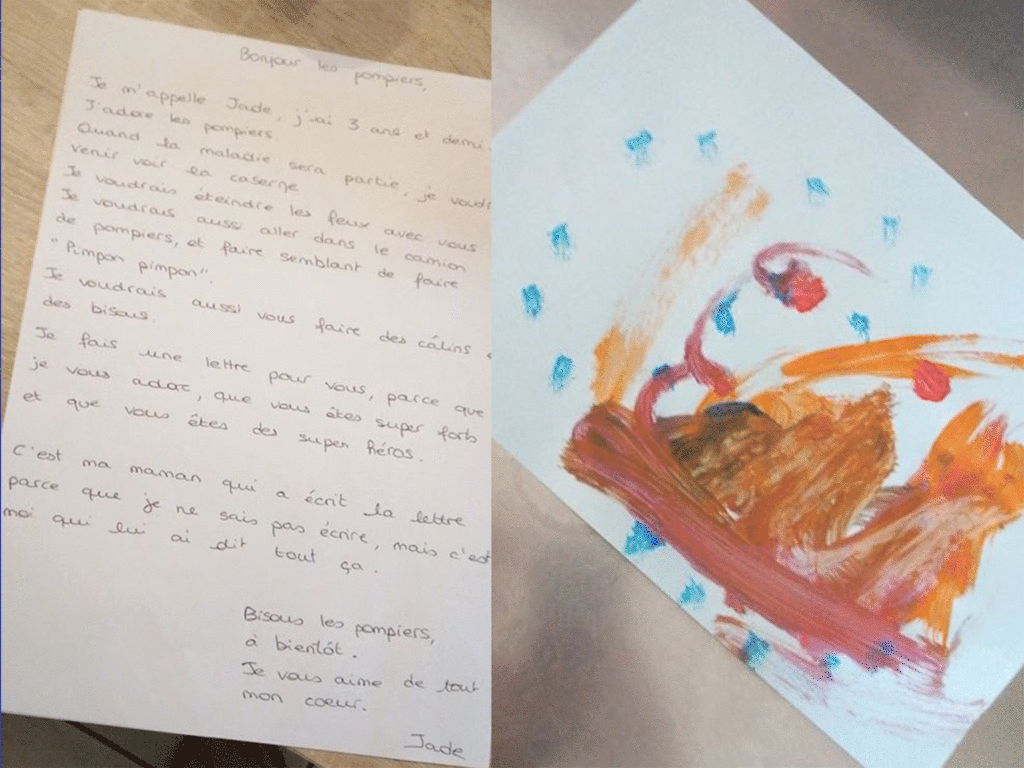 Bonjour les pompiers,
Je m'appelle Jade, j'ai 3 ans et demi.
J'adore les pompiers
Quand la maladie sera partie, je voudr
venir voir la caserne
Je voudrais éteindre les feux avec vous
Je voudrais aussi aller dans le camion
de pompiers, et faire semblant de faire
"Pimpon pimpon".
Je voudrais aussi vous faire des câlins e
des bisous.
Je fais une lettre pour vous, parce que
je vous adore, que vous êtes super forts
et que vous êtes des super héros.
C'est ma maman qui a écrit la lettre
parce que je ne sais pas écrire, mais c'est
moi qui lui ai dit tout ça.
Bisous les pompiers,
à bientôt.
Je vous aime de tout
mon coeur.
Jade